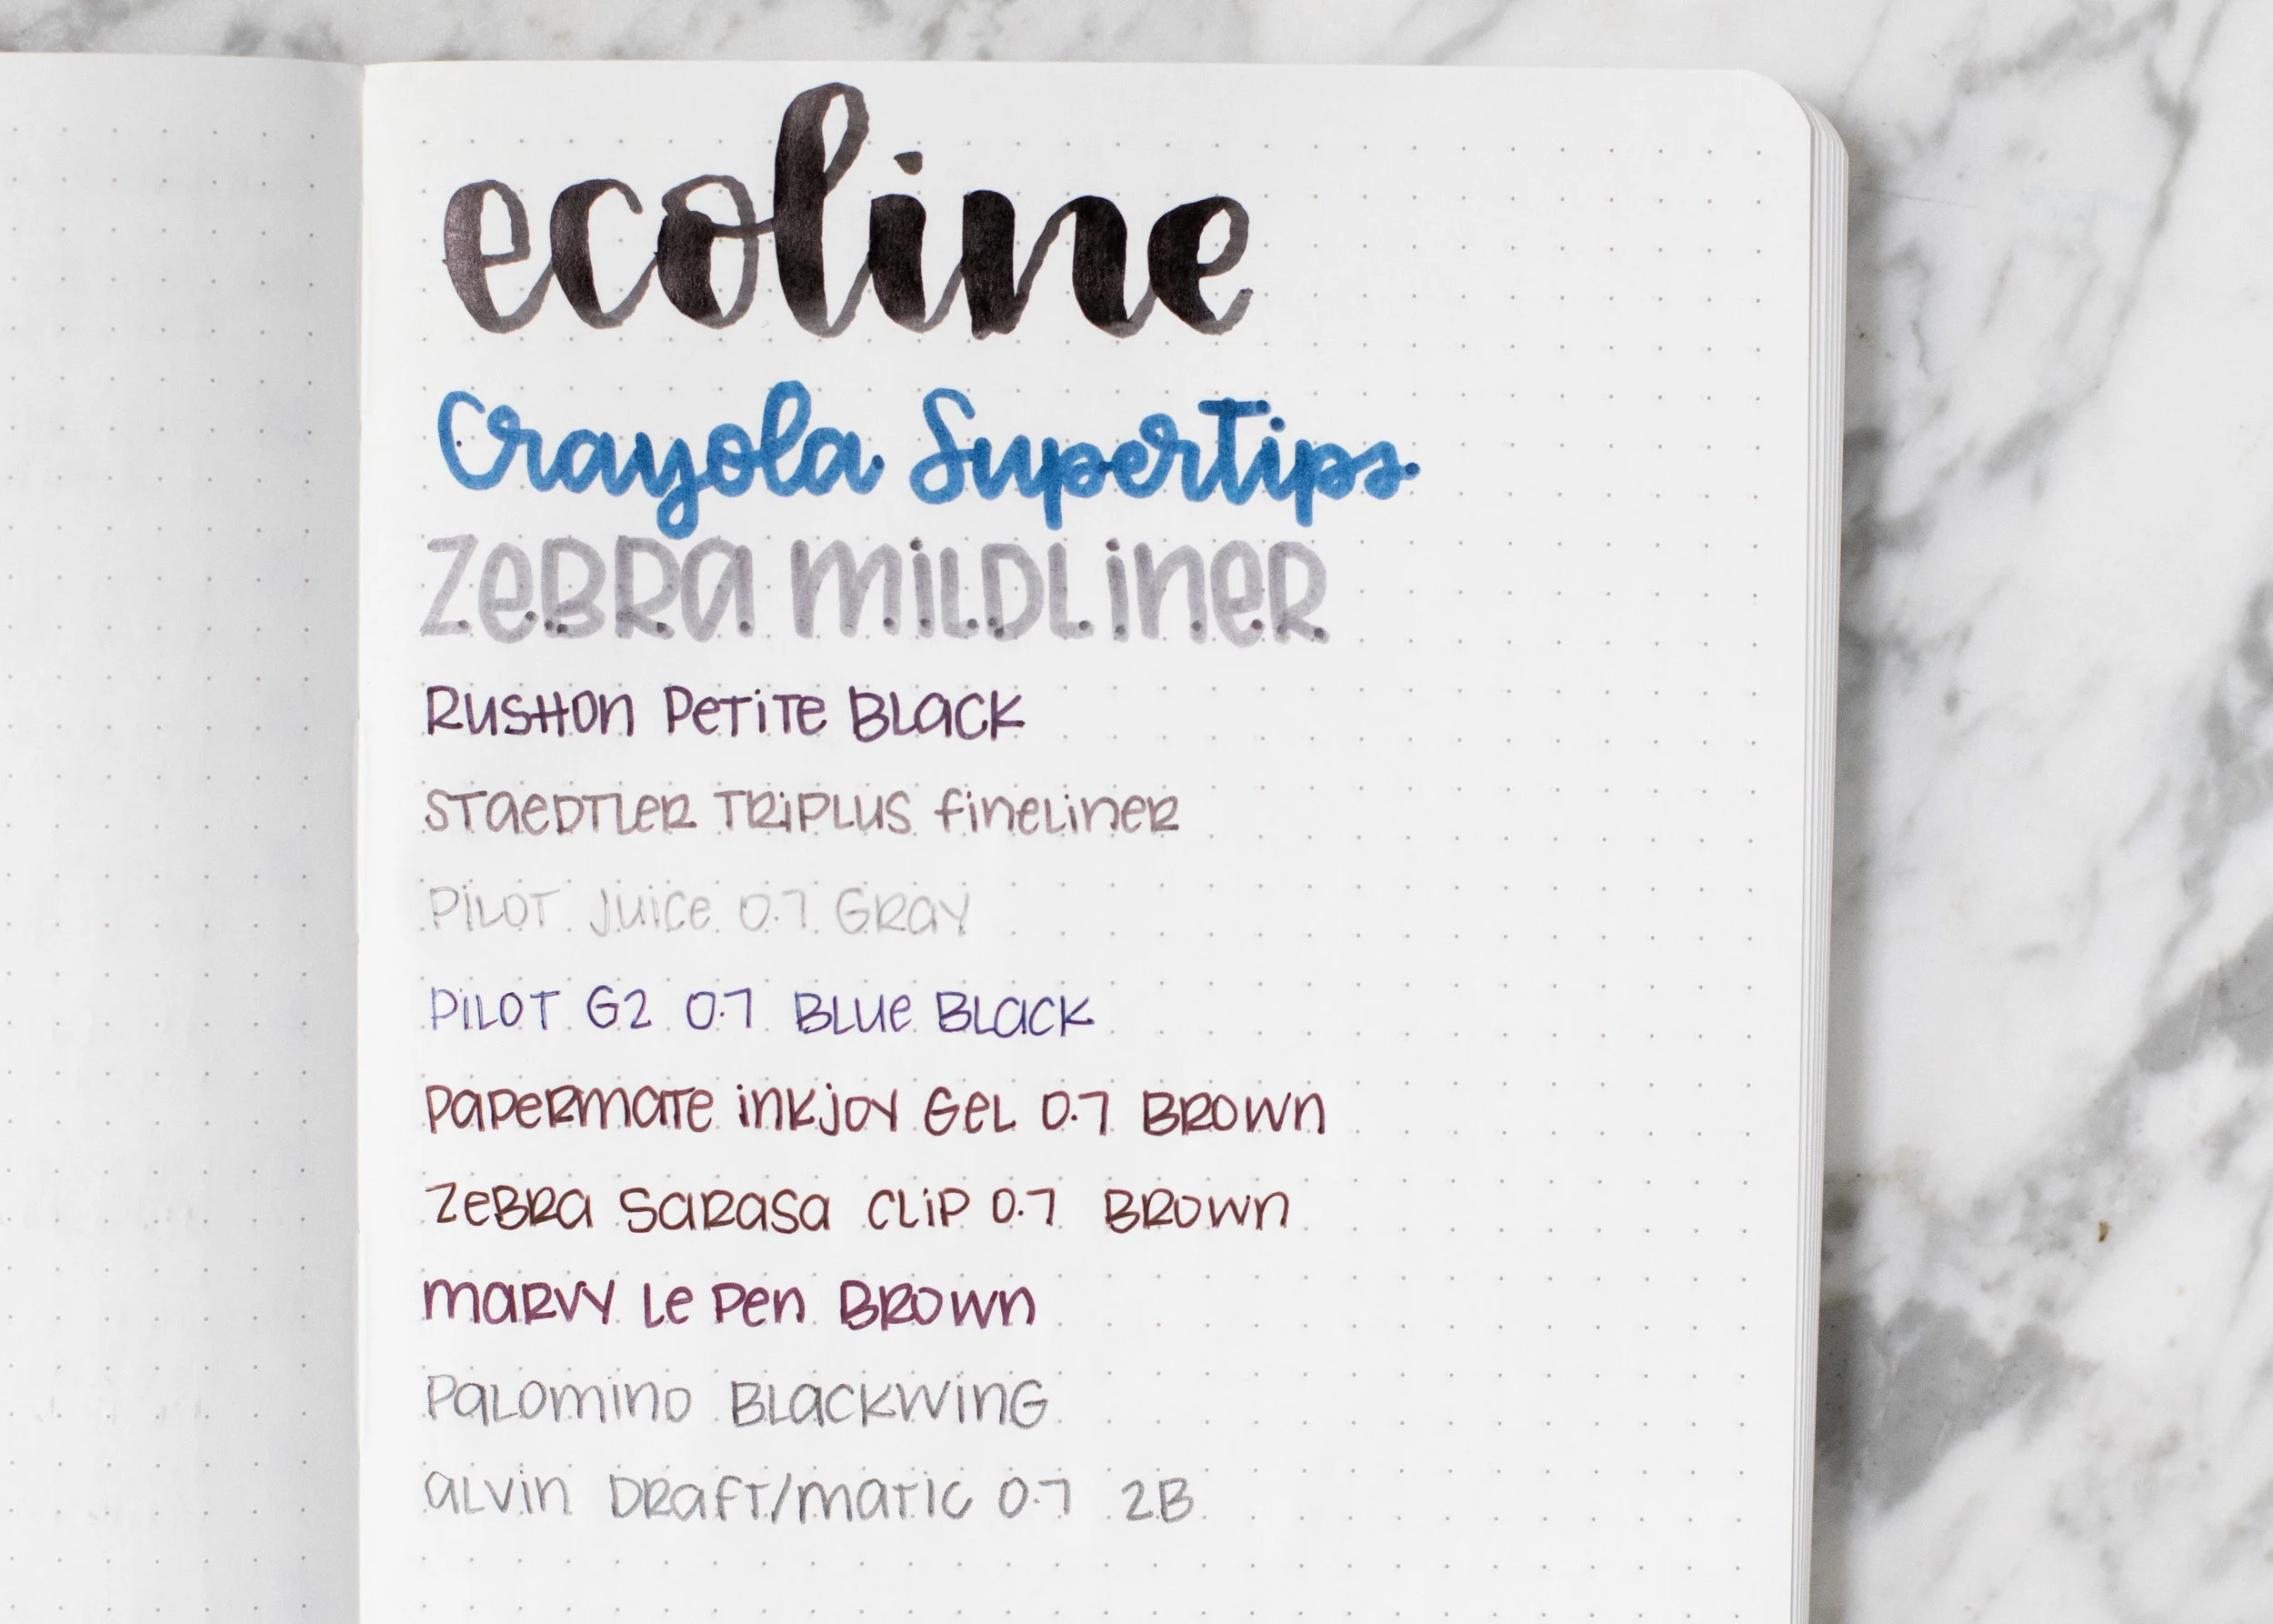 ecoline
Crayola Supertips
Zebra Mildliner
Rushon Petite Black
Staedtler Triplus Fineliner
Pilot Juice 0.7 Gray
Pilot G2 0.7 Blue Black
Papermate Inkjoy Gel 0.7 Brown
Zebra Sarasa Clip 0.7 Brown
Marvy Le Pen Brown
Palomino Blackwing
Alvin Draft/Matic 0.7 2B